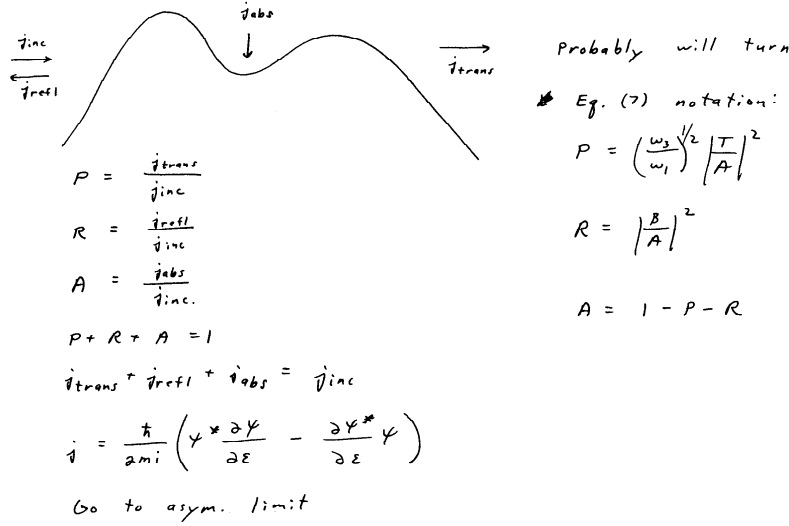 j_inc
j_refl
j_abs
j_trans
P = j_trans / j_inc
R = j_refl / j_inc
A = j_abs / j_inc.
P + R + A = 1
j_trans + j_refl + j_abs = j_inc
j = ħ/2mi (ψ* ∂ψ/∂ε - ∂ψ*/∂ε ψ)
Go to asym. limit
Probably will turn
Eq. (7) notation:
P = (ω₃/ω₁)^1/2 |T/A|²
R = |B/A|²
A = 1 - P - R